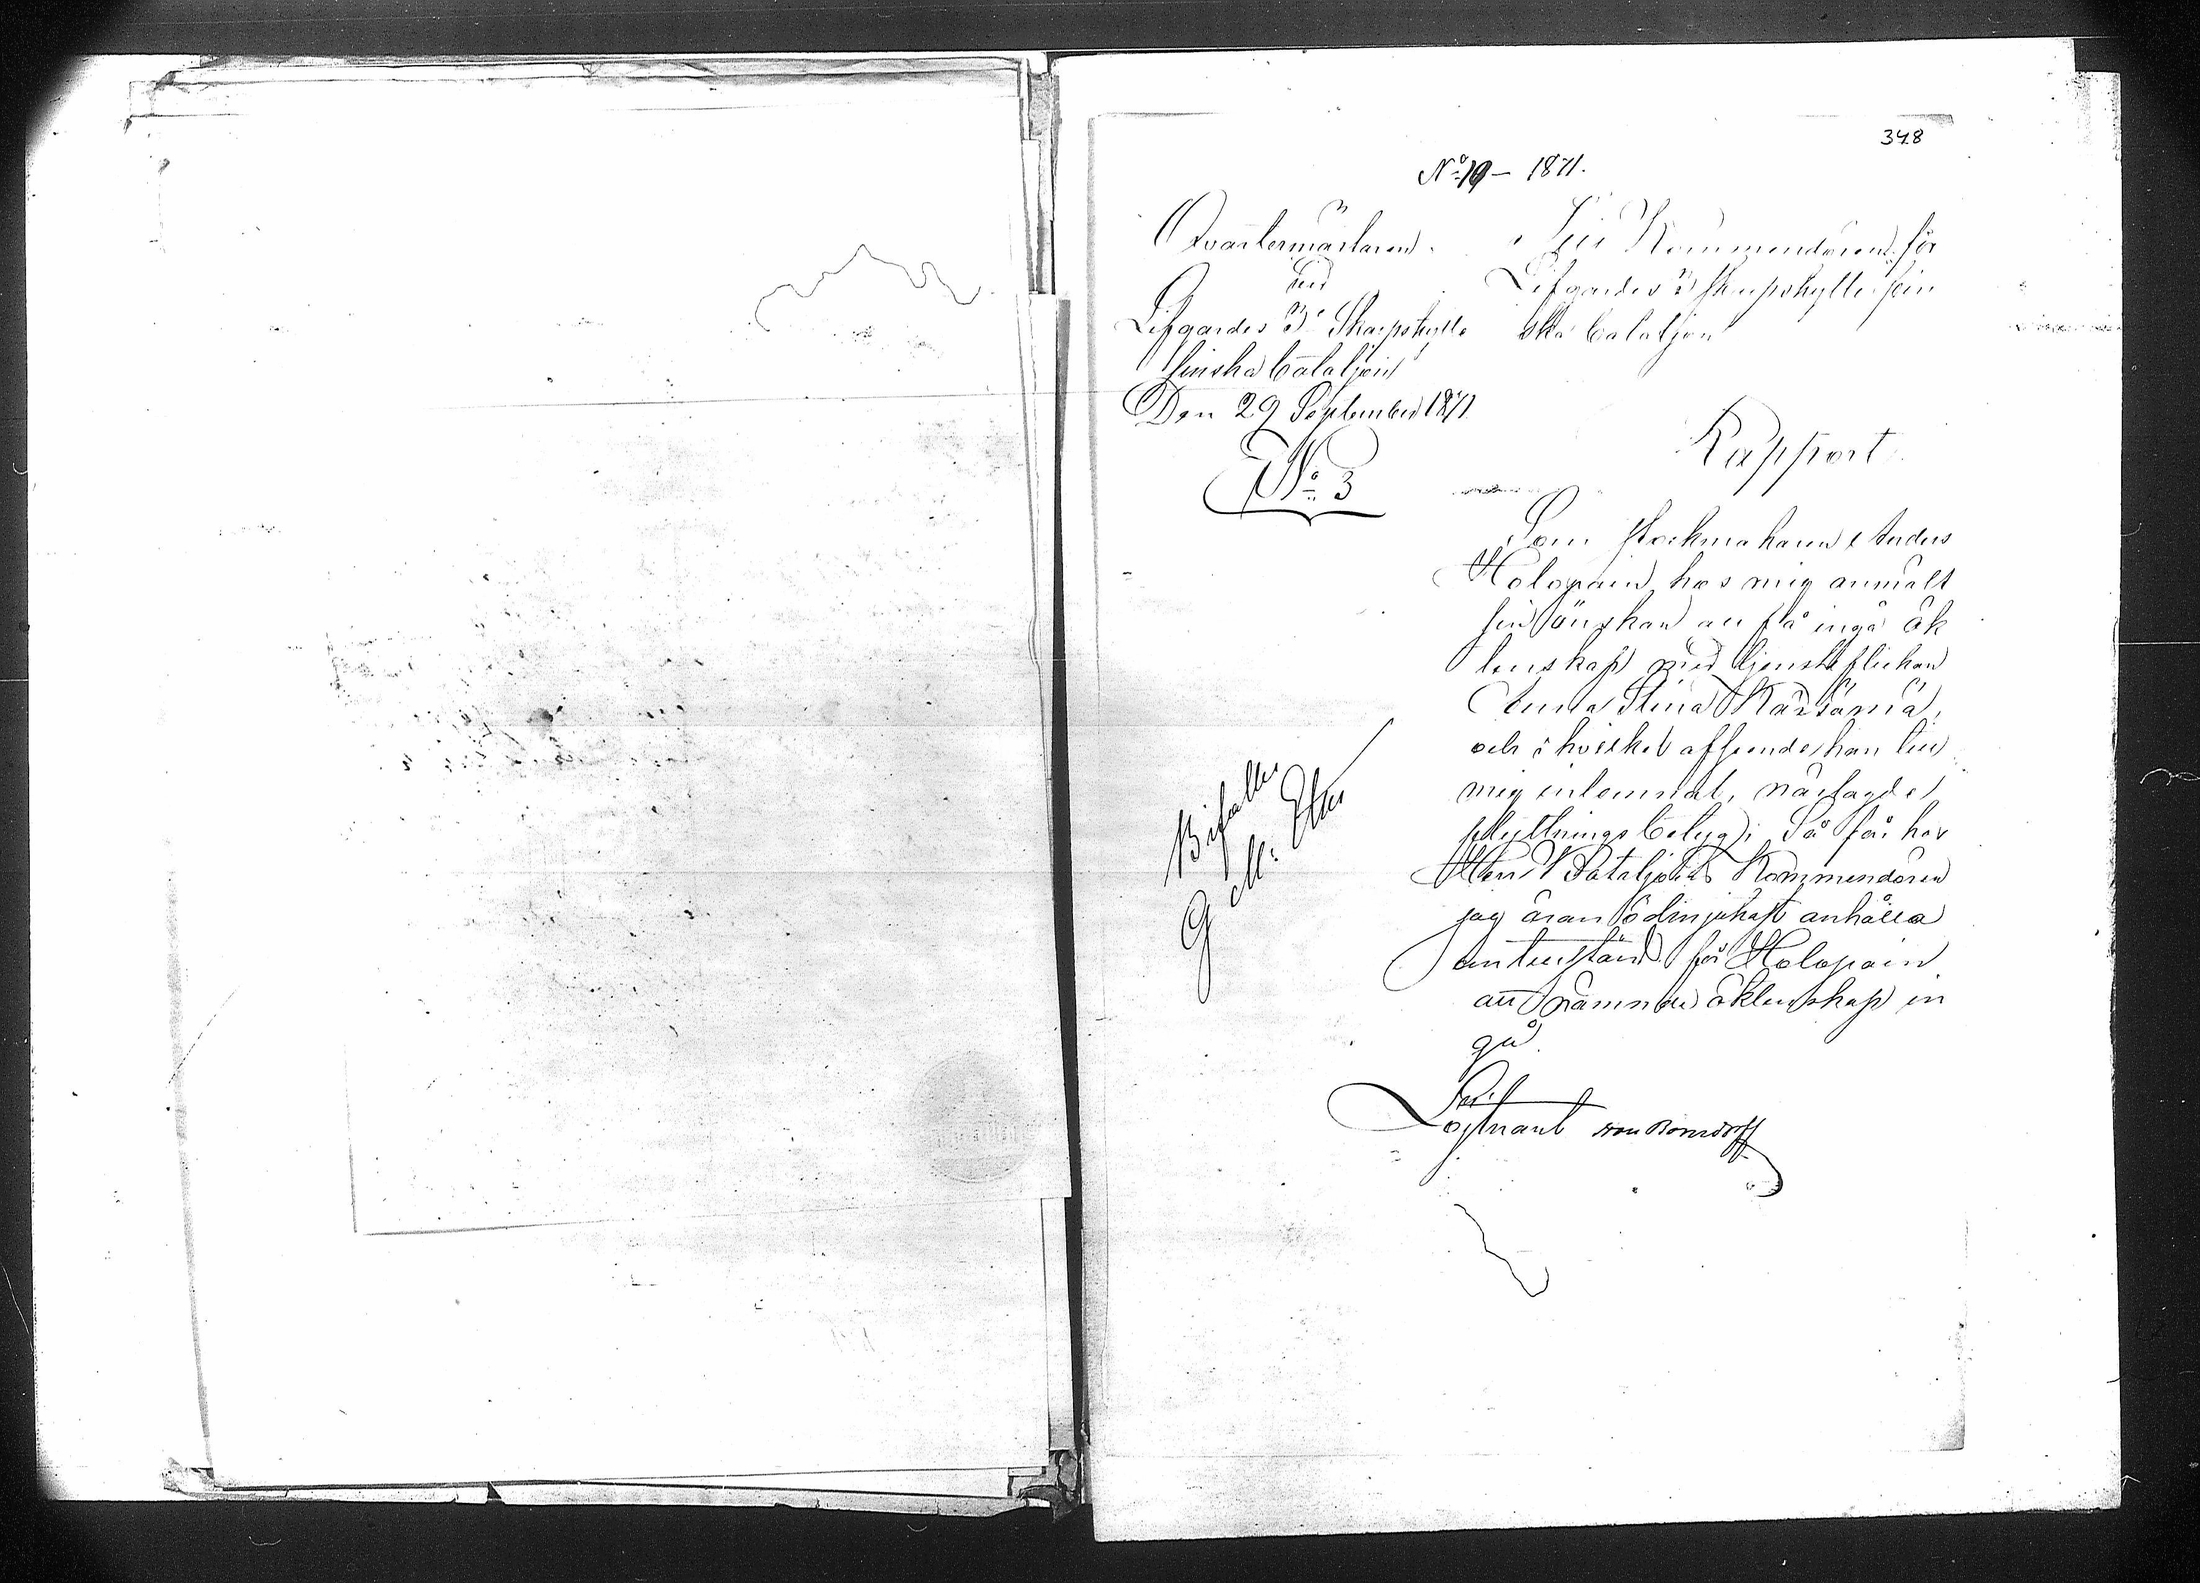 348
No 19 – 1871.
Qvartermästaren
vid
Lifgardes 3e Skarpskytte
finska bataljon
Den 29 September 1871.
No 3
Till Kommendören för
Lifgardes 3 skarpskytte fin
ska bataljon
Rapport
Som stockmakaren Anders
Holopain hos mig anmält
sin önskan att få ingå äk
tenskap med tjensteflickan
Anna Stina
och i hvilket afseende han till
mig inlemnat, närlagde
flyttningsbetyg; Så får hos
Herr Bataljons Kommendören
jag äran ödmjukast anhålla
om tillstånd för Holopain
att nämnde äktenskap in
gå
Löjtnant von Bonsdorff
Bifalles
G M: Etter